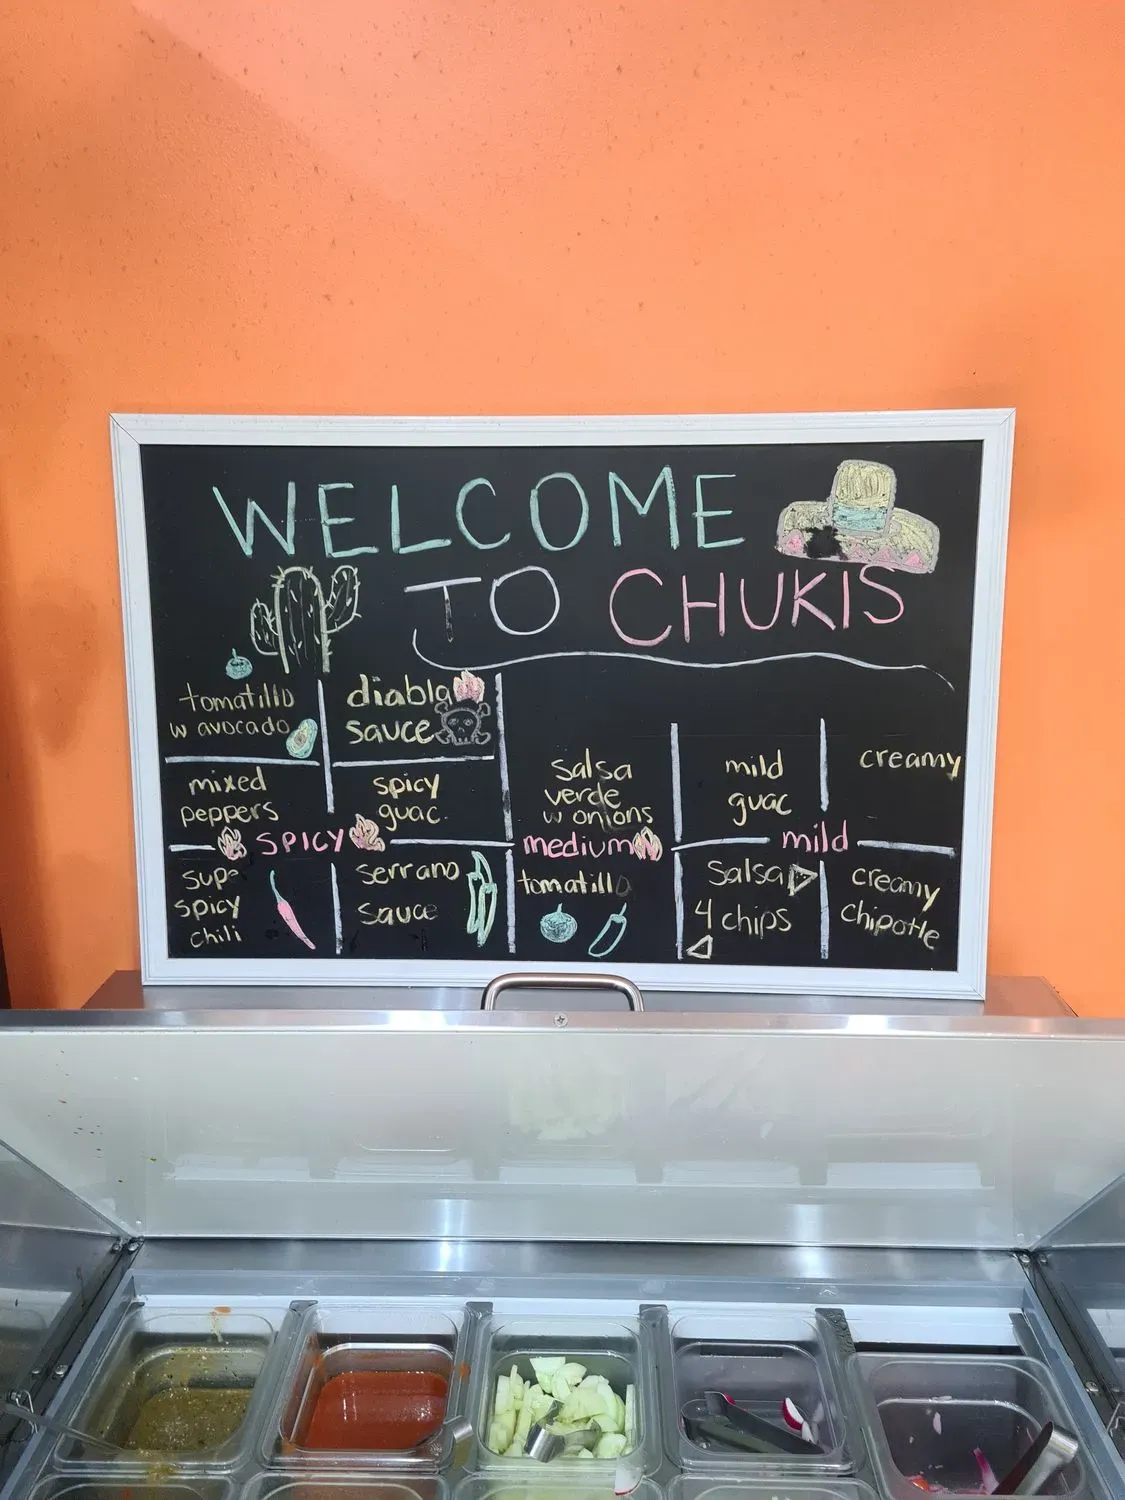 WELCOME
TO CHUKIS
tomatillo
w avocado
diabla
sauce
mixed
peppers
spicy
guac.
salsa
verde
w onions
mild
guac
creamy
SPICY
medium
mild
supe
spicy
chili
serrano
sauce
tomatillo
Salsa
4 chips
creamy
chipotle